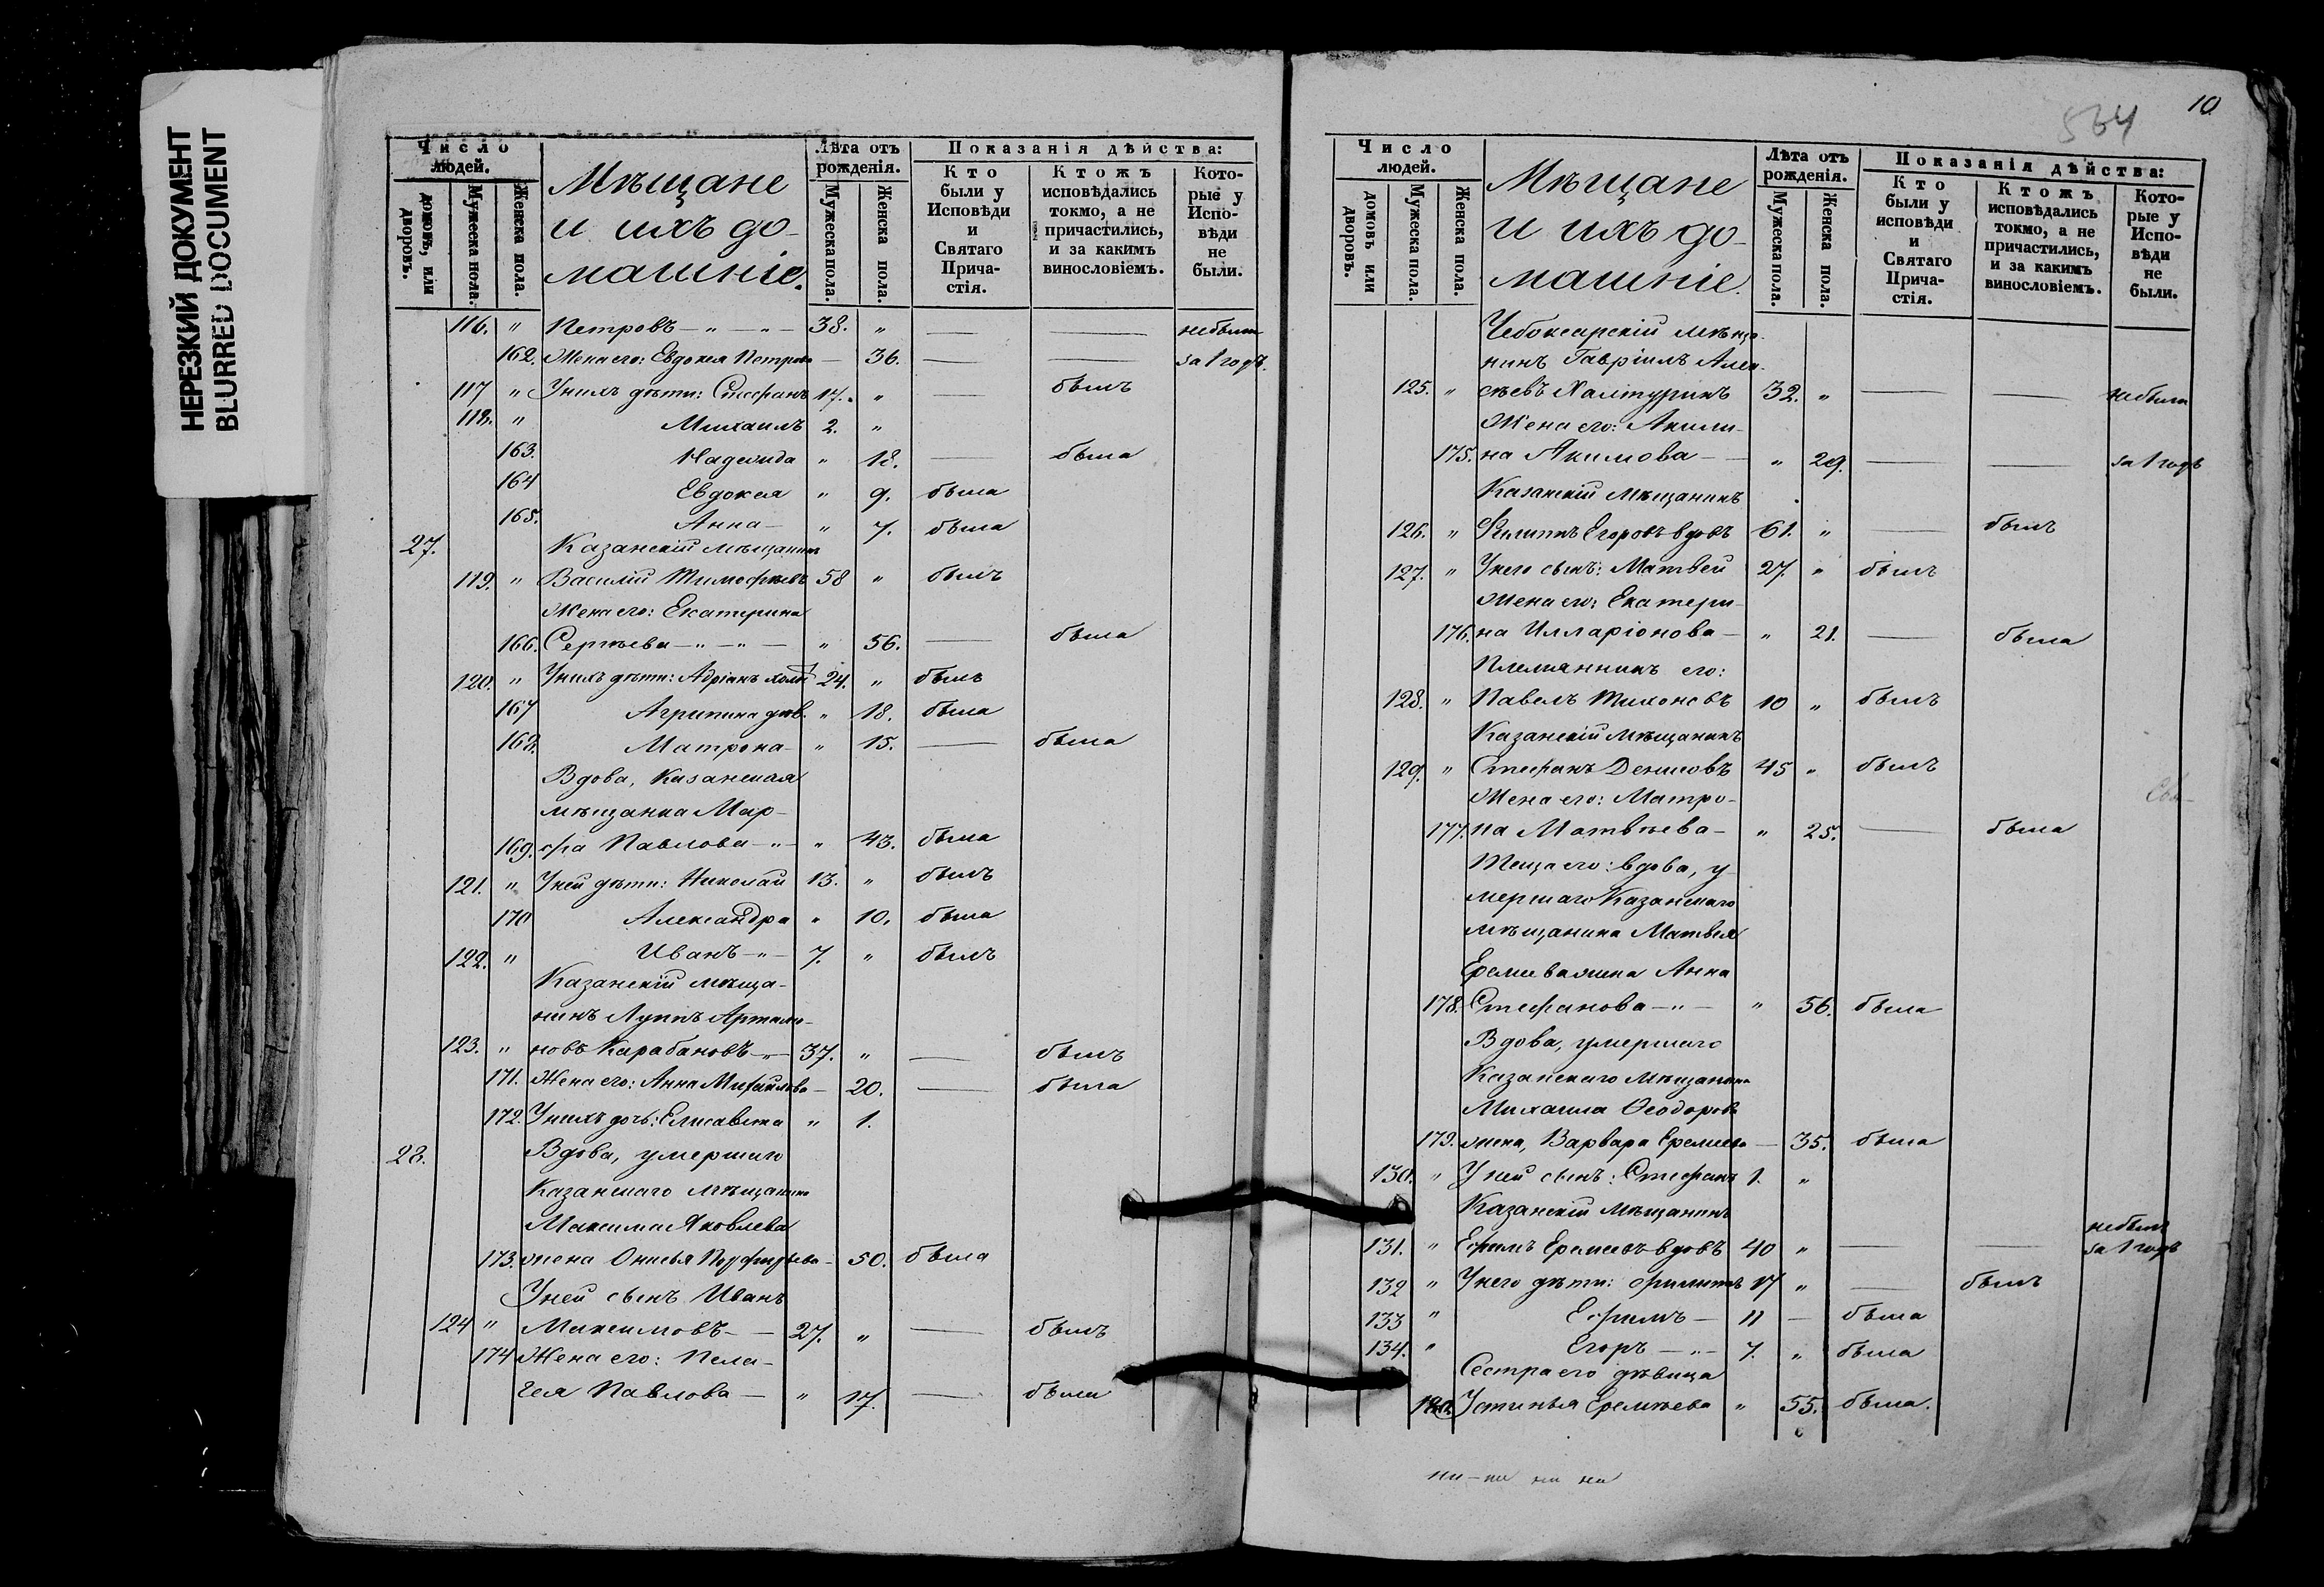 НЕРЕЗКИЙ ДОКУМЕНТ
BLURRED DOCUMENT
Число людей.
домовъ, или дворовъ.
Мужеска пола.
Женска пола.
Мѣщане
и ихъ до-
машніе.
Лѣта отъ рожденія.
Мужеска пола.
Женска пола.
Показанія дѣйства:
Кто были у Исповѣди и Святаго Прича-стія.
Ктожъ исповѣдались токмо, а не причастились, и за какимъ винословіемъ.
Кото-рые у Испо-вѣди не были.
116. " Петровъ — " — " — 38. " — — небыли
162. Жена его: Евдокея Петрова — 36. — — за 1 годъ.
117 " У нихъ дѣти: Стефанъ 17. " — былъ
118. " Михаилъ 2. "
163. Надежда " 18. — была
164 Евдокея " 9. была
165. Анна — " 7. была
27. Казанскій мѣщанинъ
119. " Василій Тимофѣевъ 58 " былъ
Жена его: Екатерина
166. Сергѣева — " — " — " 56. — была
120. " У нихъ дѣти: Адріанъ холос 24. " былъ
167 Агрипина дѣв. " 18. была
168. Матрона — " 15. — была
Вдова, Казанская
мѣщанка Мар-
169. фа Павлова — " — " 43. была
121. " У ней дѣти: Николай 13. " былъ
170 Александра " 10. была
122. " Иванъ — " — 7. " былъ
Казанскій мѣща-
нинъ Луппъ Артамо-
123. " новъ Карабановъ — " — 37. " — былъ
171. Жена его: Анна Михайлова — 20. — была
172. У нихъ дочь: Елисавета " 1.
28. Вдова, умершаго
Казанскаго мѣщанина
Максима Яковлева
173. жена Онисья Порфирьева — 50. была
У ней сынъ Иванъ
124 " Максимовъ — — 27. " — былъ
174 Жена его: Пела-
гея Павлова — " 17. — была
10
534
Число людей.
домовъ или дворовъ.
Мужеска пола.
Женска пола.
Мѣщане
и ихъ до-
машніе.
Лѣта отъ рожденія.
Мужеска пола.
Женска пола.
Показанія дѣйства:
Кто были у исповѣди и Святаго Прича-стія.
Ктожъ исповѣдались токмо, а не причастились, и за какимъ винословіемъ.
Кото-рые у Испо-вѣди не были.
Чебоксарскій мѣща-
нинъ Гавріилъ Алек-
125. " сѣевъ Халтуринъ 32. " — — небыли
Жена его: Акили-
175. на Акимова — — " 29. — — за 1 годъ
Казанскій мѣщанинъ
126. " Филиппъ Егоровъ вдовъ 61. " — былъ
127. " У него сынъ: Матвей 27. " былъ
Жена его: Екатери-
176. на Илларіонова — " 21. — была
Племянникъ его:
128. " Павелъ Тихоновъ 10 " былъ
Казанскій мѣщанинъ
129. " Стефанъ Денисовъ 45 " былъ
Жена его: Матро-
177. на Матвѣева — " 25. — была
Теща его: вдова, у-
мершаго Казанскаго
мѣщанина Матвея
Еремѣева жена Анна
178. Стефанова — " — " 56. была
Вдова, умершаго
Казанскаго мѣщанина
Михаила Ѳеодорова
179. жена, Варвара Еремеева — 35. была
130. " У ней сынъ: Стефанъ 1. "
Казанскій мѣщанинъ
131. " Ефимъ Еремеевъ вдовъ 40 " — — небылъ за 1 годъ
132 " У него дѣти: Филиппъ 17 " — былъ
133 " Ефимъ — 11 — была
134. " Егоръ — " — 7. " была
Сестра его дѣвица
180. Устинья Еремѣева " 55. была.